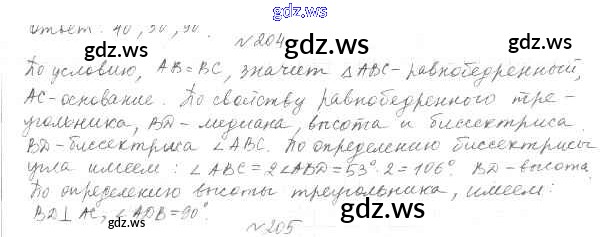 gdz.ws
Ответ: 40°, 50°, 90°.
№204
По условию, AB=BC, значит △ABC-равнобедренный,
AC-основание. По свойству равнобедренного тре-
угольника, BD-медиана, высота и биссектриса.
BD-биссектриса ∠ABC. По определению биссектрисы
угла имеем: ∠ABC=2∠ABD=53°·2=106°. BD-высота.
По определению высоты треугольника, имеем:
BD⊥AC, ∠ADB=90°.
№205
gdz.ws
gdz.ws
gdz.ws
gdz.ws
gdz.ws
gdz.ws